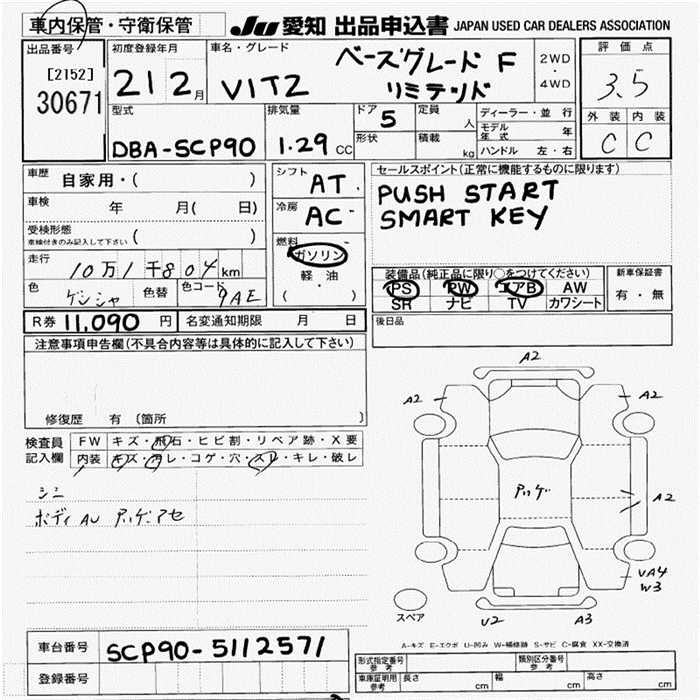 車内保管・守衛保管 Ju 愛知 出品申込書 JAPAN USED CAR DEALERS ASSOCIATION
出品番号 初度登録年月 車名・グレード 2WD ・ 4WD 評価点
[2152] 30671 21 2月 VITZ ベースグレード F リミテッド 3.5
型式 排気量 ドア 5 定員 人 ディーラー・並行 外装 内装
DBA-SCP90 1.29 CC 形状 積載 kg モデル年式 年 C C
ハンドル 左・右
車歴 自家用・( ) シフト AT セールスポイント(正常に機能するものに限ります)
車検 年 月( 日) 冷房 AC PUSH START
受検形態 車検付きのみ記入して下さい ( ) 燃料 SMART KEY
走行 10万1千804km ガソリン
色 色替 色コード 9AE 軽・油 ( ) 装備品(純正品に限り○をつけてください) 新車保証書
PS PW エアB AW 有・無
SR ナビ TV カワシート
R券 11,090 円 名変通知期限 月 日 後日品
注意事項申告欄(不具合内容等は具体的に記入して下さい)
修復歴 有 (箇所 )
検査員記入欄 FW キズ・飛石・ヒビ割・リペア跡・X要
内装 キズ・ヨゴレ・コゲ・穴・スレ・キレ・破レ
ボディAU
A2
A2 A2
A2
VA4
W3
スペア U2 A3
A-キズ E-エクボ U-凹み W-補修跡 S-サビ C-腐食 XX-交換済
車台番号 SCP90-5112571
登録番号
形式指定番号 参考 類別区分番号 参考
車庫証明用 参考 長さ cm 幅 cm 高さ cm